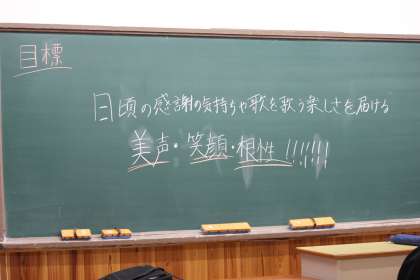 目標
日頃の感謝の気持ちや歌を歌う楽しさを届ける
美声・笑顔・根性!!!!!!